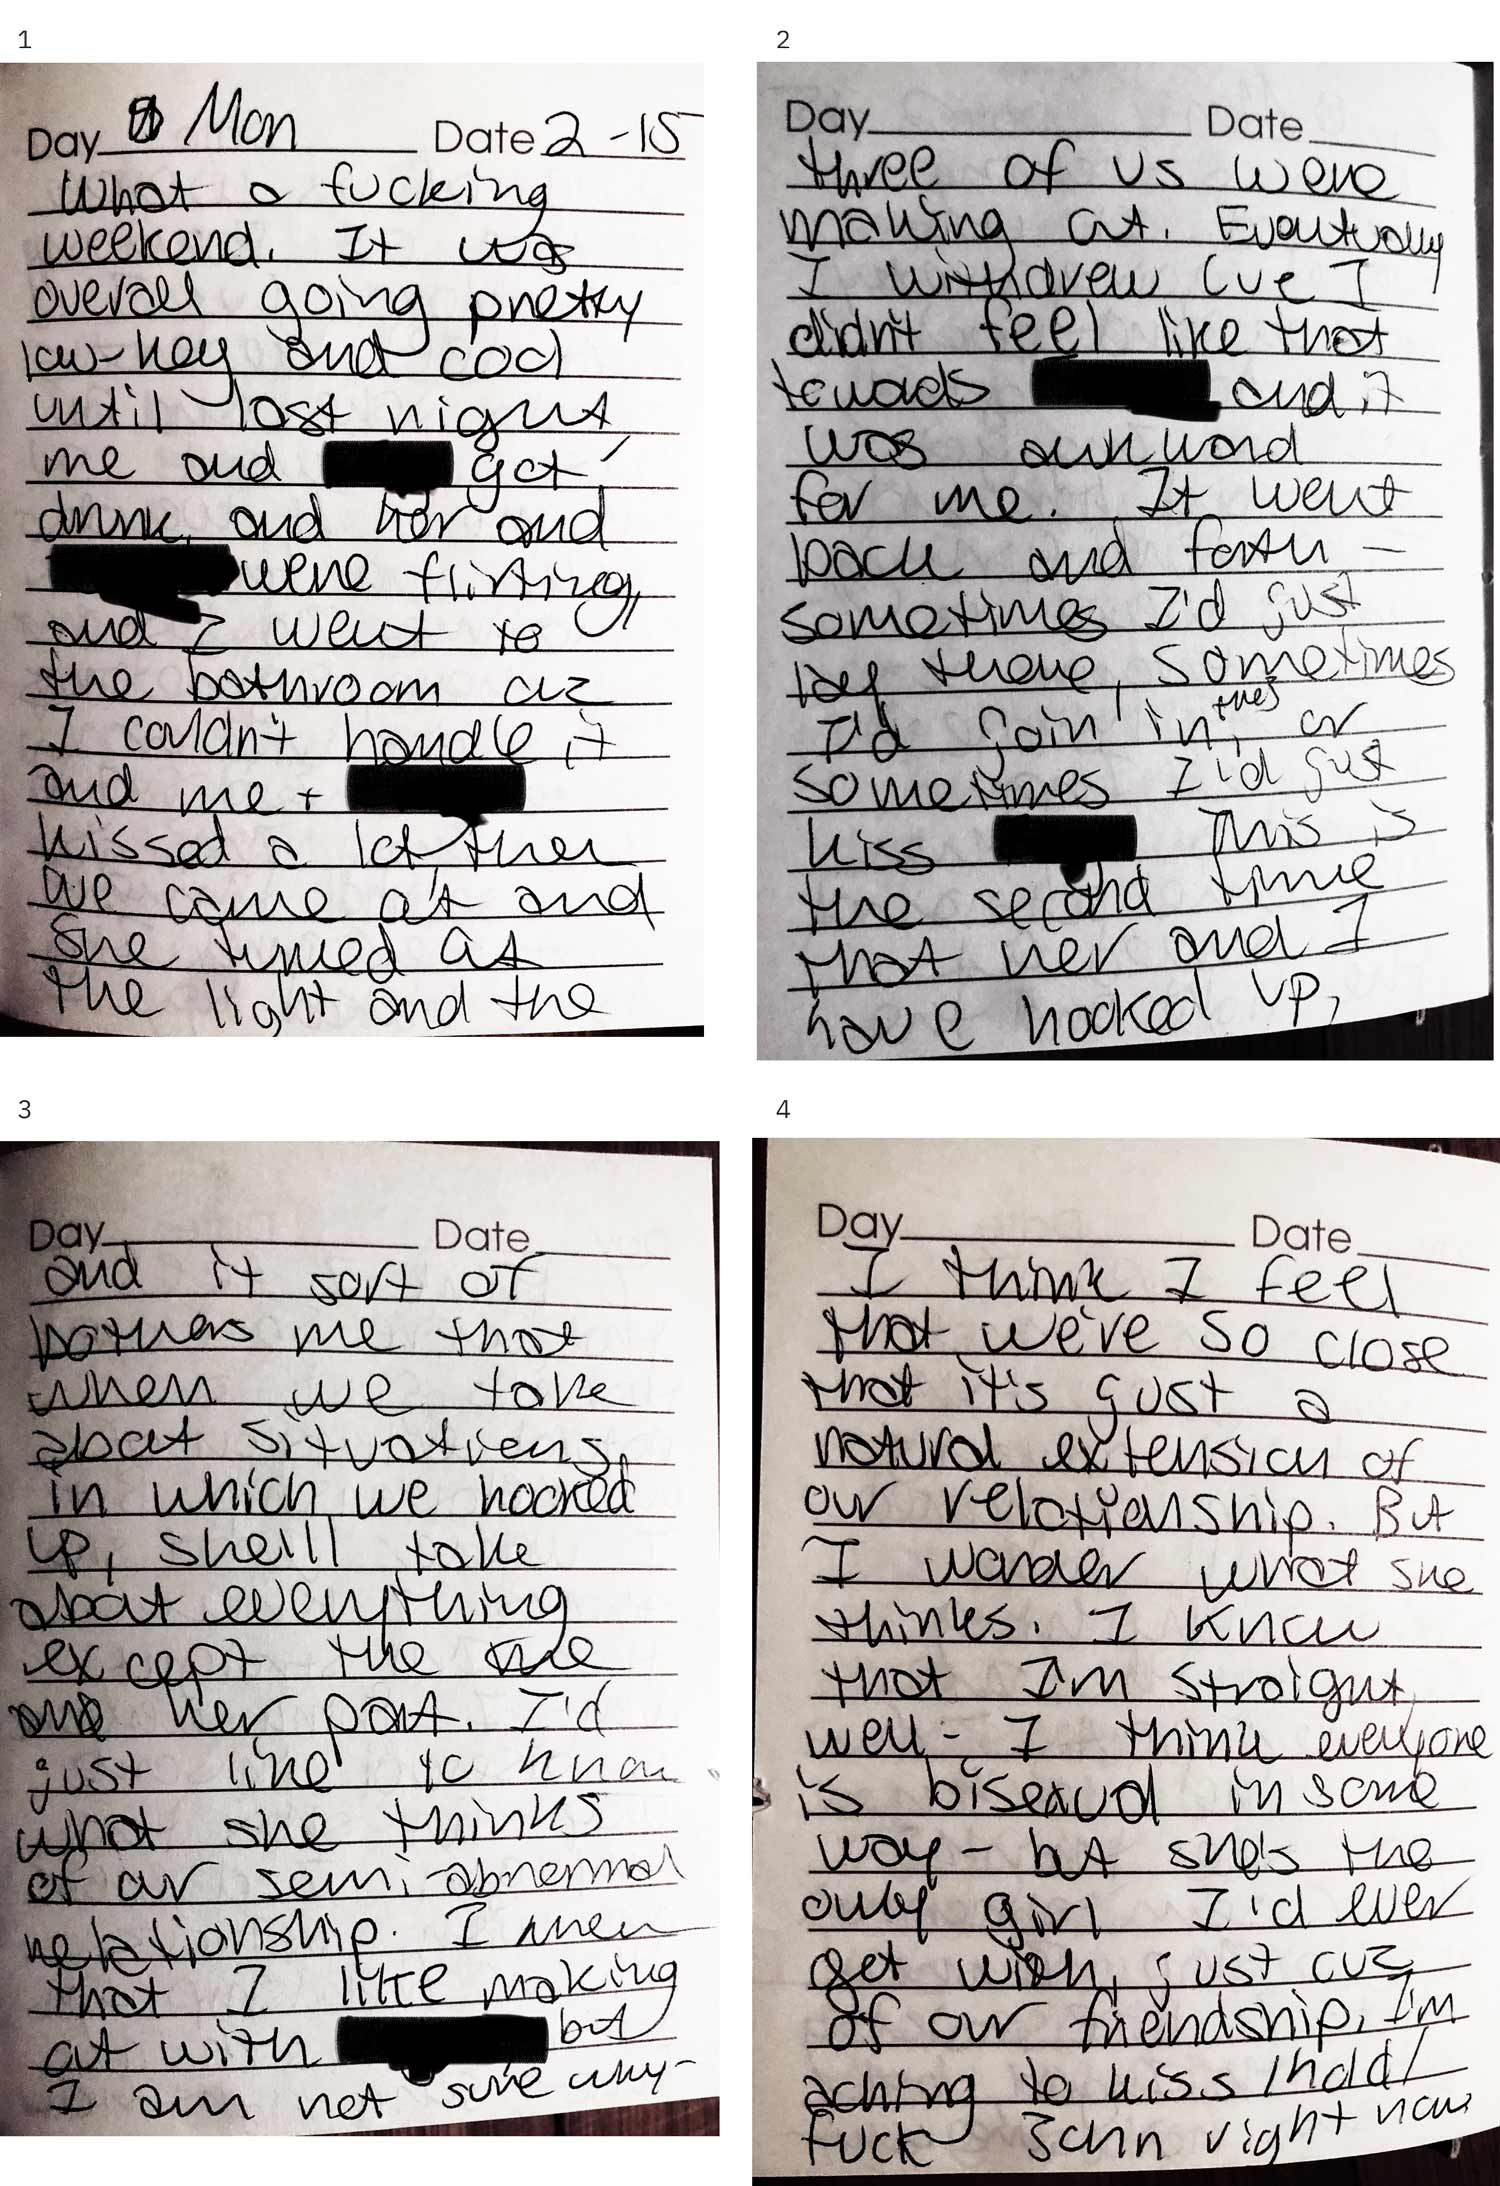 1
Day Mon Date 2-15
What a fucking
weekend. It was
overall going pretty
low-key and cool
until last night
me and got
drunk, and her and
were flirting,
and I went to
the bathroom cuz
I couldn't handle it
and me +
kissed a lot then
we came out and
she turned out
the light and the
2
Day Date
three of us were
making out. Eventually
I withdrew cuz I
didn't feel like that
towards and it
was awkward
for me. It went
back and forth -
sometimes I'd just
lay there, sometimes
I'd join in, or
sometimes I'd just
kiss This is
the second time
that her and I
have hooked up,
3
Day Date
and it sort of
bothers me that
when we talk
about situations
in which we hooked
up, she'll talk
about everything
except the me
and her part. I'd
just like to know
what she thinks
of our semi-abnormal
relationship. I know
that I like making
out with but
I am not sure why-
4
Day Date
I think I feel
that we've so close
that it's just a
natural extension of
our relationship. But
I wonder what she
thinks. I know
that I'm straight,
well - I think everyone
is bisexual in some
way - but she's the
only girl I'd ever
get with, just cuz
of our friendship. I'm
aching to kiss/hold/
fuck John right now